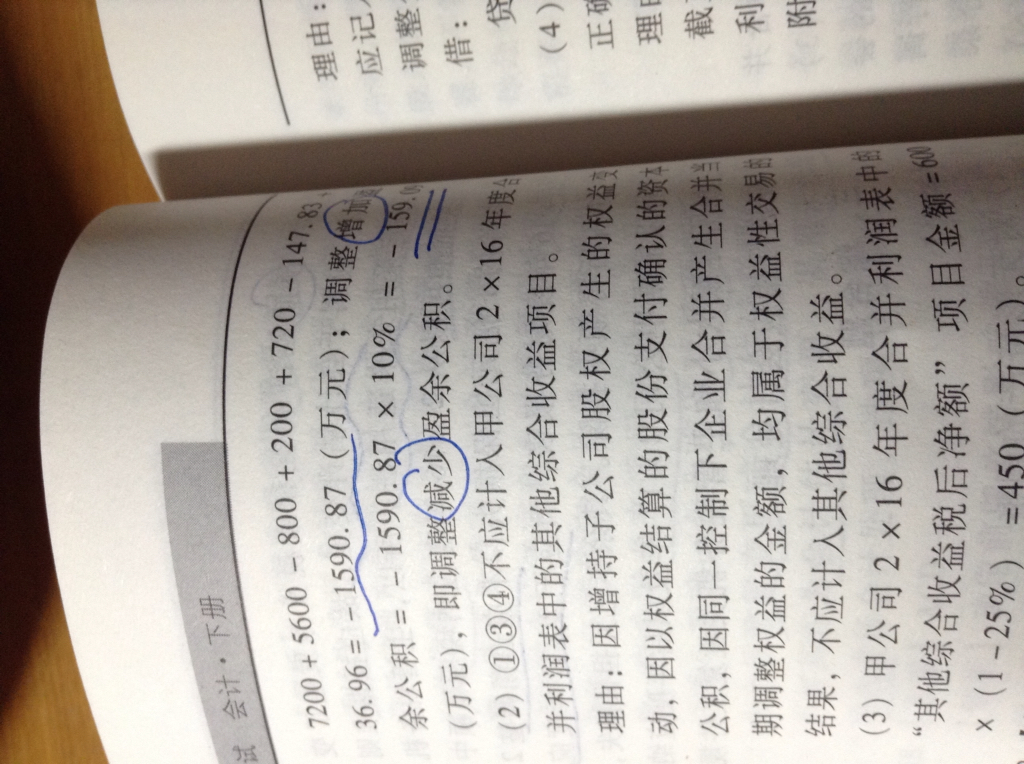 试 会计·下册
7200 + 5600 - 800 + 200 + 720 - 147.83
36.96 = - 1590.87（万元）；调整增加
余公积 = - 1590.87 × 10% = - 159.0
（万元），即调整减少盈余公积。
（2）①③④不应计入甲公司 2×16 年度合
并利润表中的其他综合收益项目。
理由：因增持子公司股权产生的权益变
动，因以权益结算的股份支付确认的资本
公积，因同一控制下企业合并产生合并当
期调整权益的金额，均属于权益性交易的
结果，不应计入其他综合收益。
（3）甲公司 2×16 年度合并利润表中的
“其他综合收益税后净额”项目金额 = 600
×（1 - 25%）= 450（万元）。
理由：
应记
调整
借：
贷
（4）
正确
理由
截
利
附